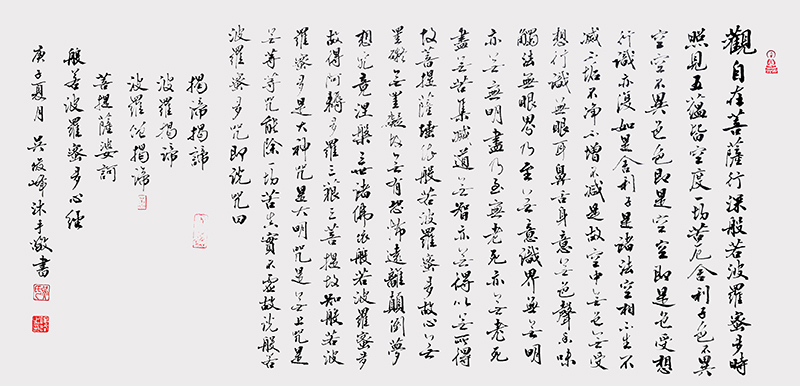 觀自在菩薩行深般若波羅蜜多時
照見五蘊皆空度一切苦厄舍利子色不異
空空不異色色即是空空即是色受想
行識亦復如是舍利子是諸法空相不生不
滅不垢不净不增不減是故空中無色無受
想行識無眼耳鼻舌身意無色聲香味
觸法無眼界乃至無意識界無無明
亦無無明盡乃至無老死亦無老死
盡無苦集滅道無智亦無得以無所得
故菩提薩埵依般若波羅蜜多故心無
罣礙無罣礙故無有恐怖遠離顛倒夢
想究竟涅槃三世諸佛依般若波羅蜜多
故得阿耨多羅三藐三菩提故知般若波
羅蜜多是大神咒是大明咒是無上咒是
無等等咒能除一切苦真實不虛故説般若
波羅蜜多咒即説咒曰
揭諦揭諦
波羅揭諦
波羅僧揭諦
菩提薩婆訶
般若波羅蜜多心經
庚子夏月 吳俊峰沐手敬書